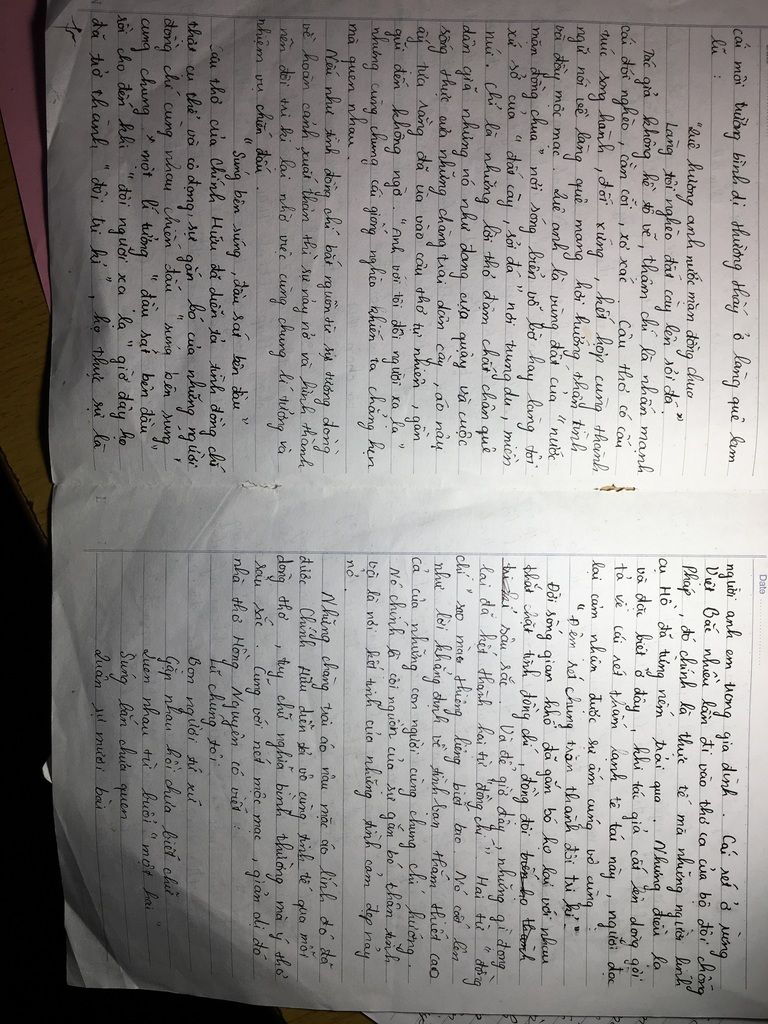 cái môi trường bình dị thường thấy ở làng quê lam
lũ :
"Quê hương anh nước mặn đồng chua
Làng tôi nghèo đất cày lên sỏi đá"
Tác giả không hề tô vẽ, thậm chí là nhấn mạnh
cái đói nghèo, cằn cỗi, xơ xác. Câu thơ có cấu
trúc song hành, đối xứng, kết hợp cùng thành
ngữ nói về làng quê mang hơi hướng thân tình
và đầy mộc mạc. Quê anh là vùng đất của "nước
mặn đồng chua" nơi sóng biển vỗ bờ hay làng tôi
xứ sở của "đất cày, sỏi đá" nơi trung du, miền
núi. Chỉ là những lời thơ đậm chất chân quê
dân giã nhưng nó như đang cựa quậy và cuộc
sống thực của những chàng trai dân cày, áo nâu
ấy tựa rằng đã ùa vào câu thơ tự nhiên, gần
gũi đến không ngờ "Anh với tôi đôi người xa lạ"
nhưng cùng chung cái giống nghèo khiến ta chẳng hẹn
mà quen nhau.
Nếu như tình đồng chí bắt nguồn từ sự tương đồng
về hoàn cảnh xuất thân thì sự nảy nở và hình thành
nên đôi tri kỉ lại nhờ việc cùng chung lí tưởng và
nhiệm vụ chiến đấu.
"Súng bên súng, đầu sát bên đầu"
Câu thơ của Chính Hữu đã diễn tả tình đồng chí
thật cụ thể và cô đọng, sự gắn bó của những người
đồng chí cùng nhau chiến đấu "súng bên súng",
cùng chung một lí tưởng "đầu sát bên đầu"
rồi cho đến khi "đôi người xa lạ" giờ đây họ
đã trở thành "đôi tri kỉ", họ thực sự là
người anh em trong gia đình. Cái rét ở rừng
Việt Bắc nhiều lần đi vào thơ ca của bộ đội chống
Pháp, đó chính là thực tế mà những người lính
cụ Hồ đã từng nếm trải qua. Nhưng điều lạ
và đặc biệt ở đây, khi tác giả cất lên dòng gợi
tả về cái rét thấm lạnh tê tái này, người đọc
lại cảm nhận được sự ấm cúng vô cùng
"Đêm rét chung chăn thành đôi tri kỉ"
Đời sống gian khổ đã gắn bó họ lại với nhau
thắt chặt tình đồng chí, đồng đội
sâu sắc. Và để giờ đây, những gì đọng
lại đã kết thành hai từ "đồng chí" Hai từ "đồng
chí" sao mà thiêng liêng biết bao. Nó cất lên
như lời khẳng định về tình bạn thắm thiết cao
cả của những con người cùng chung chí hướng.
Nó chính là cội nguồn của sự gắn bó thân tình
và là nơi kết tinh của những tình cảm đẹp này
nó.
Những chàng trai áo nâu mặc áo lính đó đã
được Chính Hữu diễn tả vô cùng tinh tế qua mỗi
dòng thơ, tuy chữ nghĩa bình thường mà ý thơ
sâu sắc. Cùng với nét mộc mạc, giản dị đó
nhà thơ Hồng Nguyên có viết:
Lũ chúng tôi
Bọn người tứ xứ
Gặp nhau hồi chưa biết chữ
Quen nhau từ buổi "một hai"
Súng bắn chưa quen
Quân sự mười bài